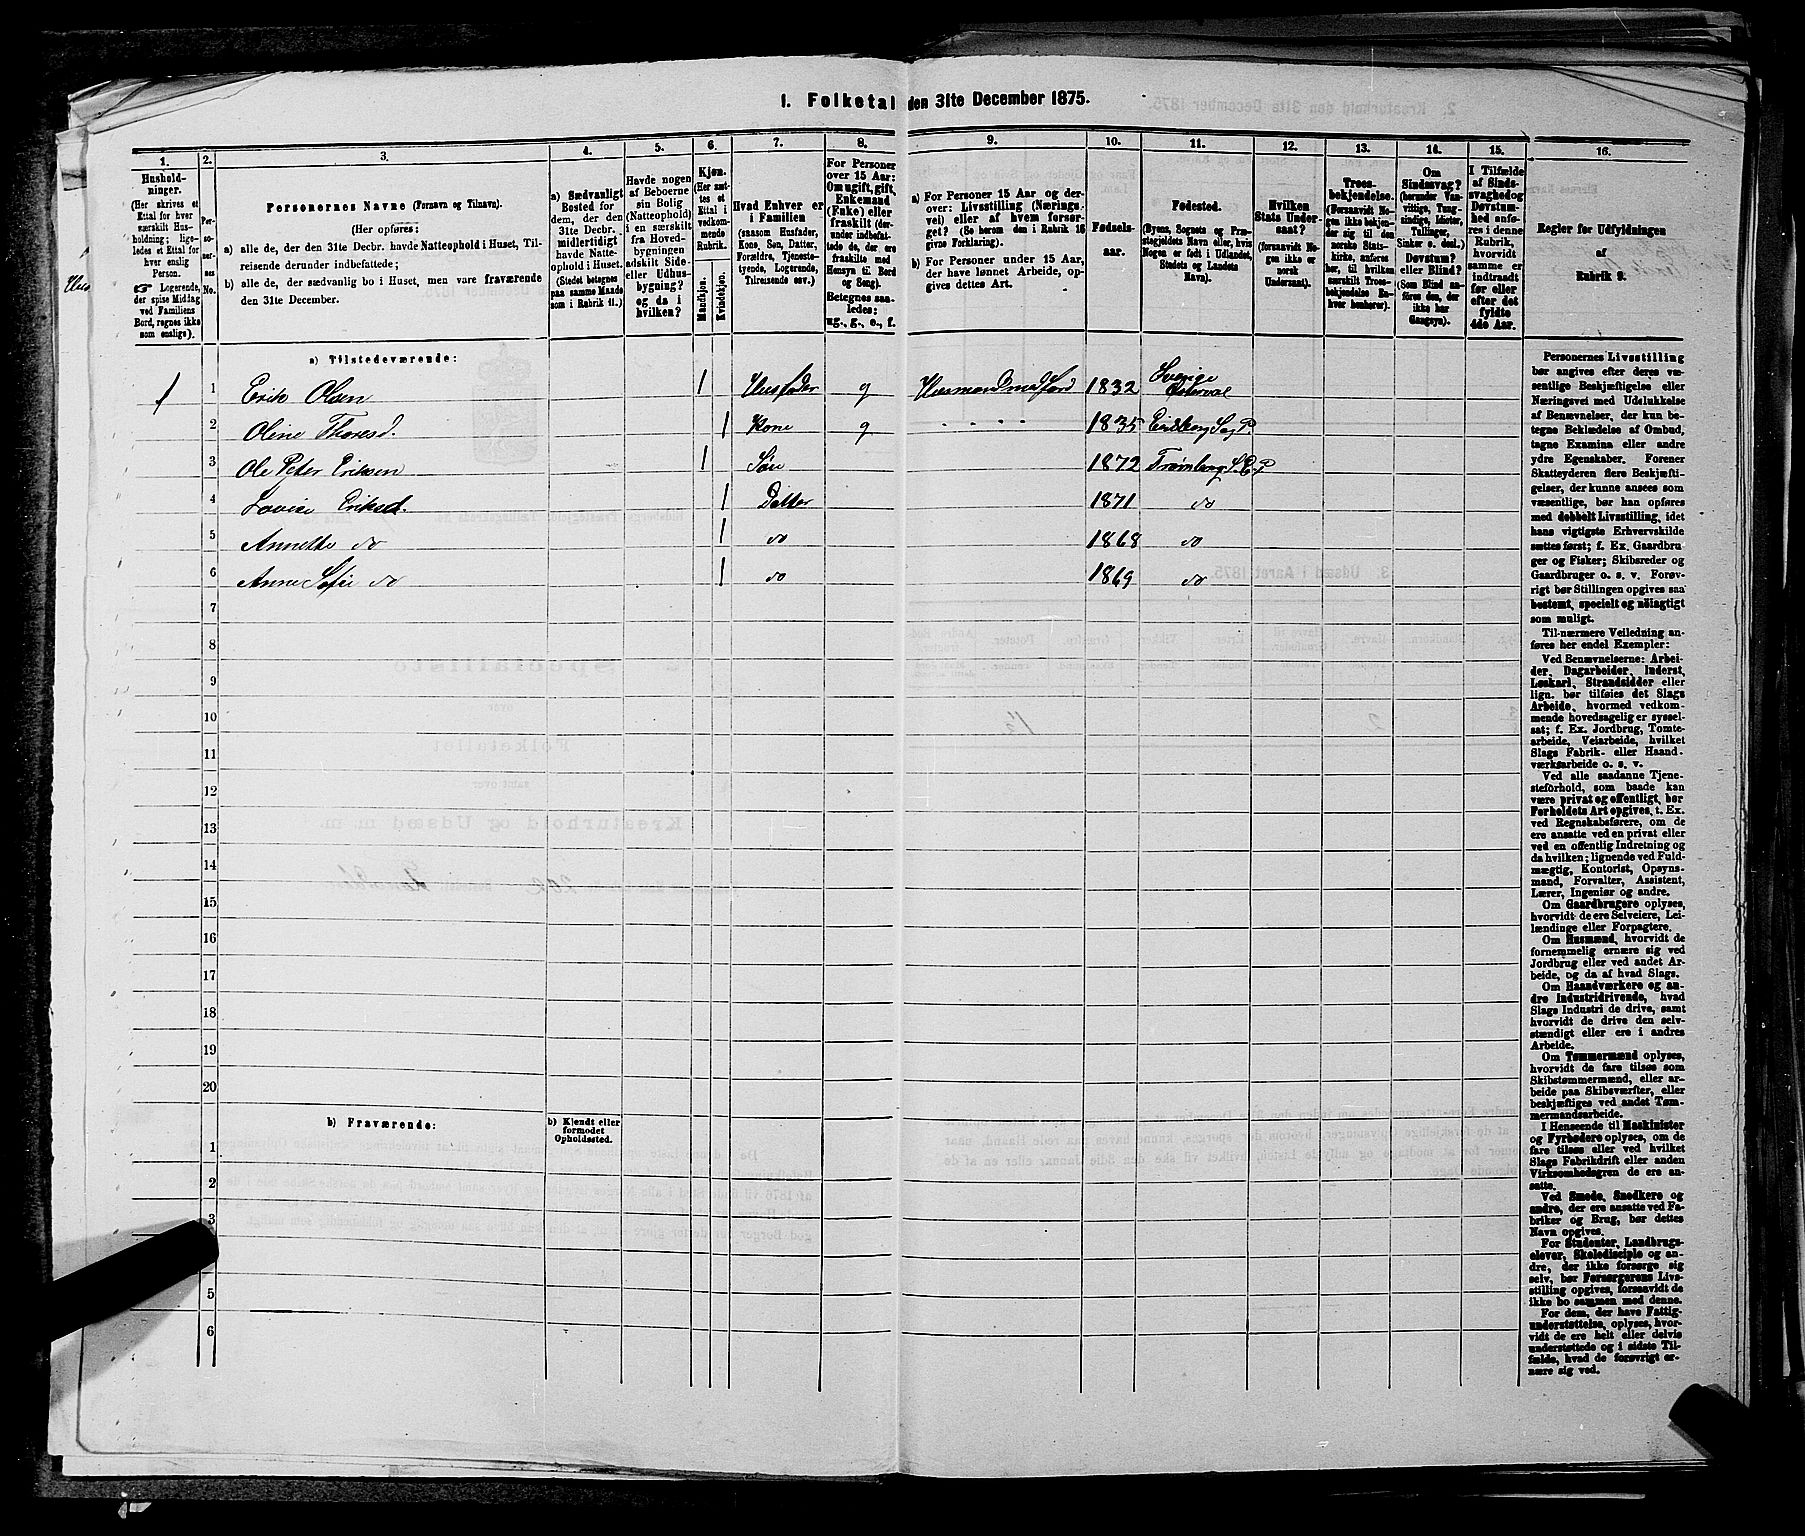 1. Folketal den 31te December 1875.
1.
Hushold-
ninger.
(Her skrives et
Ettal for hver
særskilt Hus-
holdning; lige-
ledes et Ettal for
hver enslig
Person.
Logerende,
der spise Middag
ved Familiens
Bord, regnes ikke
som enslige).
2.
Per-
so-
ner-
nes
No.
3.
Personernes Navne (Fornavn og Tilnavn).
(Her opføres:
a) alle de, der den 31te Decbr. havde Natteophold i Huset, Til-
reisende derunder indbefattede;
b) alle de, der sædvanlig bo i Huset, men vare fraværende
den 31te December.
4.
a) Sædvanligt
Bosted for
dem, der den
31te Decbr.
midlertidigt
havde Natte-
ophold i Huset.
(Stedet betegnes
paa samme Maade
som i Rubrik 11.)
5.
Havde nogen
af Beboerne
sin Bolig
(Natteophold)
i en særskilt
fra Hoved-
bygningen
adskilt Side-
eller Udhus-
bygning?
og da i
hvilken?
6.
Kjøn.
(Her sæt-
tes et
Ettal i
vedkom-
mende
Rubrik.
Mandkjøn.
Kvindekjøn.
7.
Hvad Enhver er
i Familien
(saasom Husfader,
Kone, Søn, Datter,
Forældre, Tjeneste-
tyende, Logerende,
Tilreisende osv.)
8.
For Personer
over 15 Aar:
Om ugift, gift,
Enkemand
(Enke) eller
fraskilt (der-
under indbefat-
tede de, der ere
fraskilte med
Hensyn til Bord
og Seng).
Betegnes saa-
ledes:
ug., g., e., f.
9.
a) For Personer 15 Aar og der-
over: Livsstilling (Nærings-
vei) eller af hvem forsør-
get? (Se herom den i Rubrik 16
givne Forklaring).
b) For Personer under 15 Aar,
der have lønnet Arbeide, op-
gives dettes Art.
10.
Fødsels-
aar.
11.
Fødested.
(Byens, Sognets og Præ-
stegjeldets Navn eller, hvis
Nogen er født i Udlandet,
Stedets og Landets
Navn).
12.
Hvilken
Stats Under-
saat?
(forsaavidt No-
gen ikke er
norsk
Undersaat).
13.
Troes-
bekjendelse.
(Forsaavidt No-
gen ikke bekjen-
der sig til den
norske Stats-
kirke, anføres
her, til hvilken
særskilt Troes-
bekjendelse En-
hver henhører).
14.
Om
Sindssvag?
(herunder Van-
vittige, Tung-
sindige, Idioter,
Tullinger,
Sinker o. desl.)
Døvstum?
eller Blind?
(Som Blind an-
føres den, der
ikke har
Gangsyn).
15.
I Tilfælde
af Sinds-
svaghed og
Døvstum-
hed anfø-
res i denne
Rubrik,
hvorvidt
samme er
indtraadt
før eller
efter det
fyldte
4de Aar.
16.
Regler for Udfyldningen
af
Rubrik 9.
a) Tilstedeværende:
1 1 Erik Olsen 1 Husfader g Husmand med Jord 1832 Sverige
2 Oline Thoresd. 1 Kone g " " " " 1835 Eidsberg S og P.
3 Ole Peter Eriksen 1 Søn 1872 Trømborg S. E. P
4 Lovise Eriksd. 1 Datter 1871 do
5 Annette do 1 do 1868 do
6 Anne Sofie do 1 do 1869 do
7
8
9
10
11
12
13
14
15
16
17
18
19
20
b) Fraværende:
b) Kjendt eller
formodet
Opholdssted.
1
2
3
5
6
Personernes Livsstilling
bør angives efter deres væ-
sentlige Beskjæftigelse eller
Næringsvei med Udelukkelse
af Benævnelser, der kun be-
tegne Beklædelse af Ombud,
tagne Examina eller andre
ydre Egenskaber. Forener
Skatteyderen flere Beskjæfti-
gelser, der kunne ansees som
væsentlige, bør han opføres
med dobbelt Livsstilling, idet
hans vigtigste Erhvervskilde
sættes først; f. Ex. Gaardbru-
ger og Fisker; Skibsreder og
Gaardbruger o. s. v. Forøv-
rigt bør Stillingen opgives saa
bestemt, specielt og nøiagtigt
som muligt.
Til nærmere Veiledning an-
føres her endel Exempler:
Ved Benævnelserne: Arbei-
der, Dagarbeider, Inderst,
Løskarl, Strandsidder eller
lign. bør tilføies det Slags
Arbeide, hvormed vedkom-
mende hovedsagelig er syssel-
sat; f. Ex. Jordbrug, Tomte-
arbeide, Veiarbeide, hvilket
Slags Fabrik- eller Haand-
værksarbeide o. s. v.
Ved alle saadanne Tjene-
steforhold, som baade kan
være privat og offentligt, bør
Forholdets Art opgives, t. Ex.
ved Regnskabsførere, om de
ere ansatte ved en privat eller
ved en offentlig Indretning og
da hvilken; lignende ved Fuld-
mægtig, Kontorist, Opsyns-
mand, Forvalter, Assistent,
Lærer, Ingeniør og andre.
Om Gaardbrugere oplyses,
hvorvidt de ere Selveiere, Lei-
lændinge eller Forpagtere.
Om Husmænd, hvorvidt de
fornemmelig ernære sig ved
Jordbrug eller ved andet Ar-
beide, og da af hvad Slags.
Om Haandværkere og an-
dre Industridrivende, hvad
Slags Industri de drive, samt
hvorvidt de drive den selv-
stændigt eller ere i andres
Arbeide.
Om Tømmermænd oplyses,
hvorvidt de fare tilsøs som
Skibstømmermænd, eller ar-
beide paa Skibsværfter, eller
beskjæftiges ved andet Tøm-
mermandsarbeide.
I Henseende til Maskinister
og Fyrbødere oplyses, om de
fare tilsøs eller ved hvilket
Slags Fabrikdrift eller anden
Virksomhed de ere an-
satte.
Ved Smede, Snedkere og
andre, der ere ansatte ved Fa-
briker og Brug, bør dettes
Navn opgives.
For Studenter, Landbrugs-
elever, Skoledisciple og an-
dre, der ikke forsørge sig
selv, bør Forsørgerens Livs-
stilling opgives, forsaavidt de
ikke bo sammen med denne.
For dem, der have Fattig-
understøttelse, oplyses, hvor-
vidt de ere helt eller delvis
understøttede og i sidste Til-
fælde, hvad de forøvrigt er-
nære sig ved.